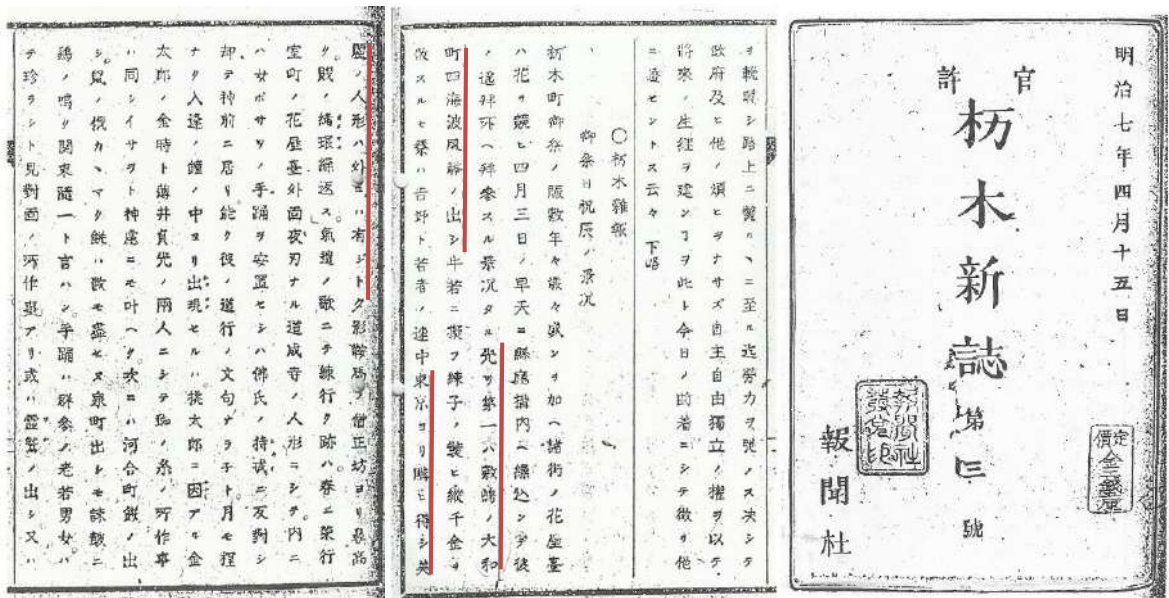 明治七年四月十五日
官許
杤木新誌 第三號
定價金
報聞社
ヲ輓馳シ路上ニ斃ルヽニ至ル迄勞力ヲ决シテ
政府及ヒ他ノ煩ヒヲナサズ自主自由獨立ノ權ヲ以テ
將來ノ生經ヲ建ンヿヲ此ト今日ノ的著ニシテ徴リ他
ニ意セントス云々 下略
〇杤木雜報
御祭日祝辰ノ景况
杤木町御祭ノ賑年々歳々盛ンヲ加ヘ諸街ノ花屋臺
ハ花ヲ競ヒ四月三日ノ早天ニ縣廳搆内ヘ繰込ンデ後
ノ遥拜所ヘ拜參スル景况タル先ヅ第一六歌時ノ大和
町四海波風静ノ出シ牛若ニ擬フ練子ノ裝ヒ縱千金ヲ
做スルヒ祭ハ吾ト若者ノ連中東京ヨリ購ヒ得シ美
麗ノ人形ハ外ニハ有ジトク影僧正坊ヨリ最高
ク賤ノ緒環繰返ス氣遣ノ歌ニテ練行ク跡ハ春ニ榮行
室町ノ花屋臺外面夜叉ナル道成寺ノ人形ニシテ内ニ
ハ女ボサツノ手踊ヲ安置セシハ佛氏ノ持誡ニ反對シ
却テ神前ニ居リ能ク役ノ道行ノ文句ナラ子ト月モ程
ナク入逢ノ鐘ノ中ヨリ出現セルハ桃太郎ニ因アル金
太郎ノ金時ト薄井貞光ノ兩人ニシテ蜘ノ糸ノ所作事
ハ同シイサヲト神慮ニモ叶ヘク次ニハ河合町餅ノ出
シ鼠ノ俵カヽマク餅ハ數モ盡セヌ泉町出シモ諌皷ニ
鶏ノ鳴ク関東隨一ト言ハン手踊ハ群參ノ老若男女ハ
ヲ珍ラシト見對面ノ所作臺アリ或ハ靈ノ出シ又ハ